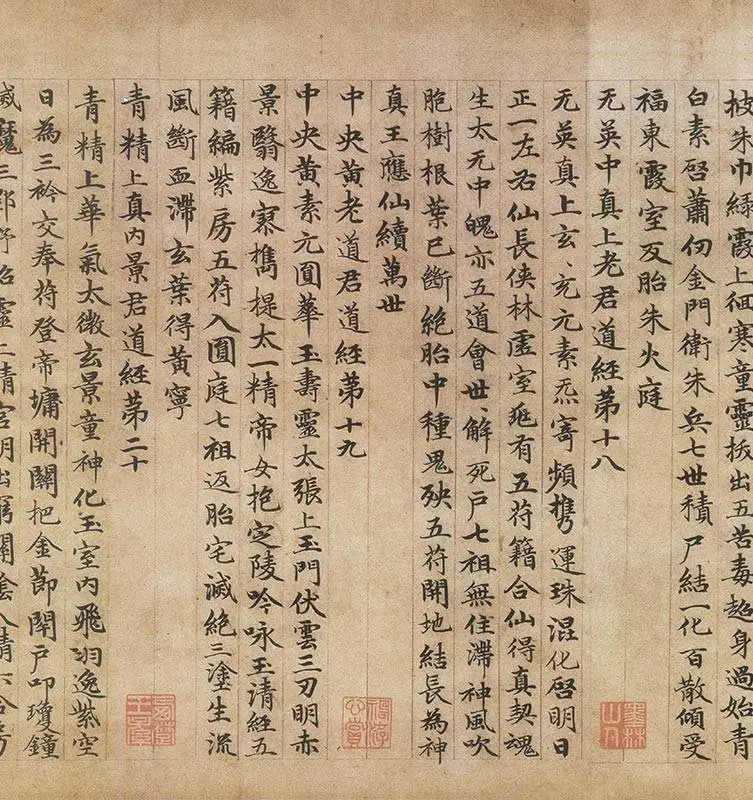 披朱巾綠霞上徊寒童靈拔出五苦毒超身過始青
白素啓蕭仞金門衛朱兵七世積尸結一化百散傾受
福東霞室反胎朱火庭
无英中真上老君道經第十八
无英真上玄、充元素炁寄頻携運珠混化啓明日
正一左右仙長俠林虛室延有五苻籍合仙得真契魂
生太无中魄亦五道會世、解死户七祖無住滯神風吹
胞樹根葉已斷絕胎中種罠殃五苻開地結長為神
真王應仙續萬世
中央黄老道君道經第十九
中央黄素元圓華玉壽靈太張上玉門伏雲三刃明赤
景翳逸寡雋提太一精帝女抱定陵吟咏玉清經五
籍編紫房五苻入圓庭七祖返胎宅滅絕三塗生流
風斷血滯玄葉得黄寧
青精上真内景君道經第二十
青精上華氣太微玄景童神化玉室内飛羽逸紫空
日為三衿交奉苻登帝墉開關把金節開户叩瓊鐘
滅魔三